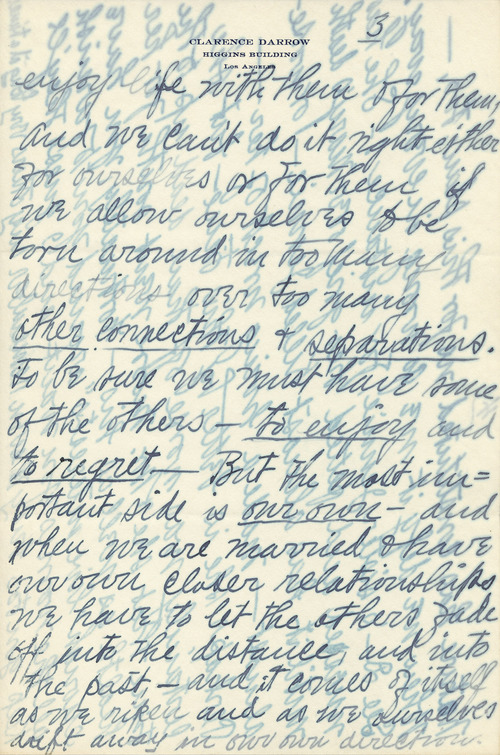 3
CLARENCE DARROW
HIGGINS BUILDING
LOS ANGELES
enjoy life with them & for them
and we can't do it right either
for ourselves or for them if
we allow ourselves to be
torn around in too many
directions over too many
other connections & separations.
To be sure we must have some
of the others — to enjoy and
to regret — But the most im=
portant side is our own - and
when we are married & have
our own closer relationships
we have to let the others fade
off into the distance, and into
the past, — and it comes of itself
as we ripen and as we ourselves
drift away in our own direction.